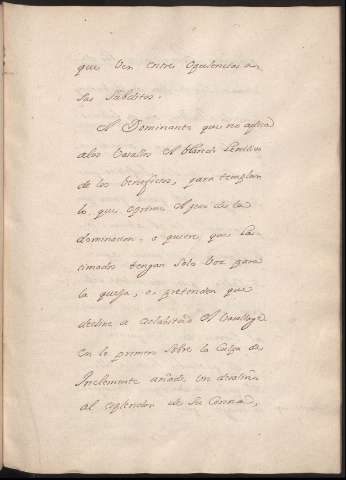 que ven entre opulencias a
sus subditos.
El Dominante que no aplica
a los Vasallos el blando lenitivo
de los beneficios, para templar
lo que oprime el peso de la
dominacion, o quiere que las
timados tengan solo voz para
la quexa, o pretenden que
decline a esclabitud el Vasallage
en lo primero sobre la culpa de
Inclemente añade un
al esplendor de su Corona,